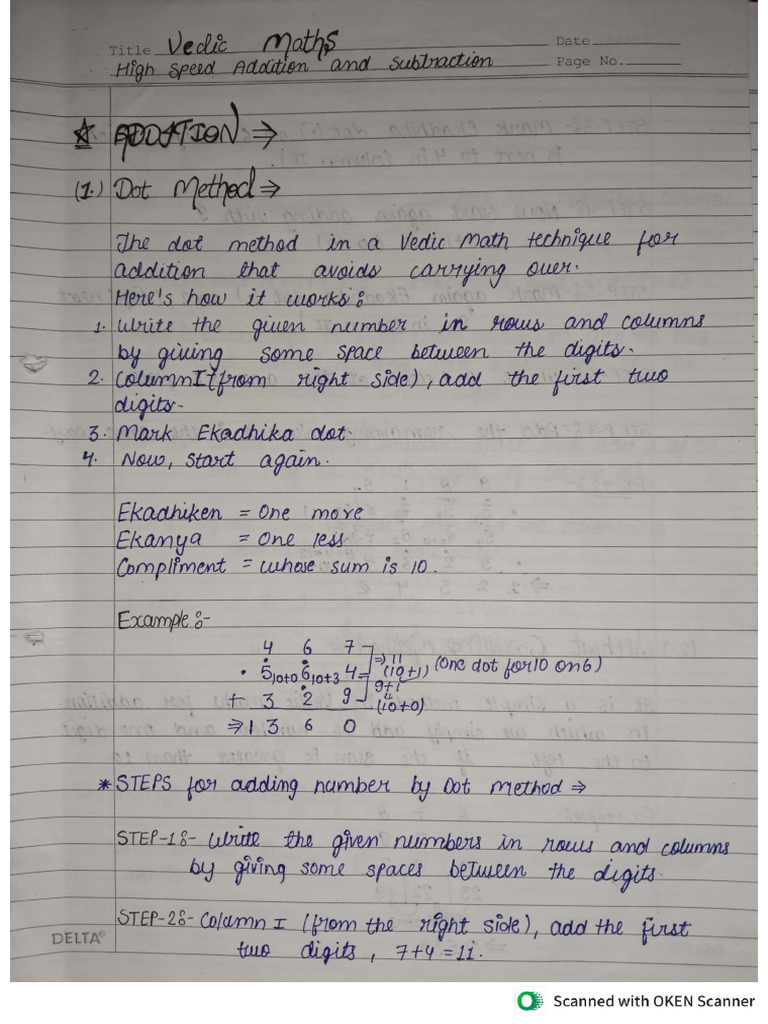 Title Vedic Maths Date
High Speed Addition and Subtraction Page No.
ADDITION ⇒
(1.) Dot Method ⇒
The dot method in a Vedic Math technique for
addition that avoids carrying over.
Here's how it works:
1. Write the given number in rows and columns
by giving some space between the digits.
2. Column I (from right side), add the first two
digits.
3. Mark Ekadhika dot.
4. Now, start again.
Ekadhiken = One more
Ekanya = One less
Compliment = whose sum is 10.
Example:-
4 6 7 ⇒ 11
• 5 10+0 6 10+3 4 (10+1) (One dot for 10 on 6)
+ 3 2 9 9+1 (10+0)
⇒ 1 3 6 0
* STEPS for adding number by Dot method ⇒
STEP-1:- Write the given numbers in rows and columns
by giving some spaces between the digits.
STEP-2:- Column I (from the right side), add the first
DELTA®
two digits, 7+4=11.
Scanned with OKEN Scanner